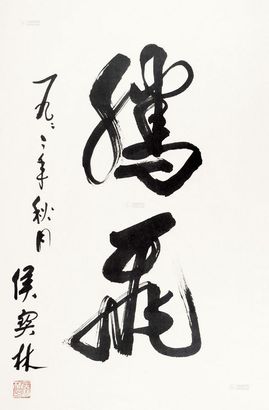 腾飞
一九八二年秋月
侯宝林